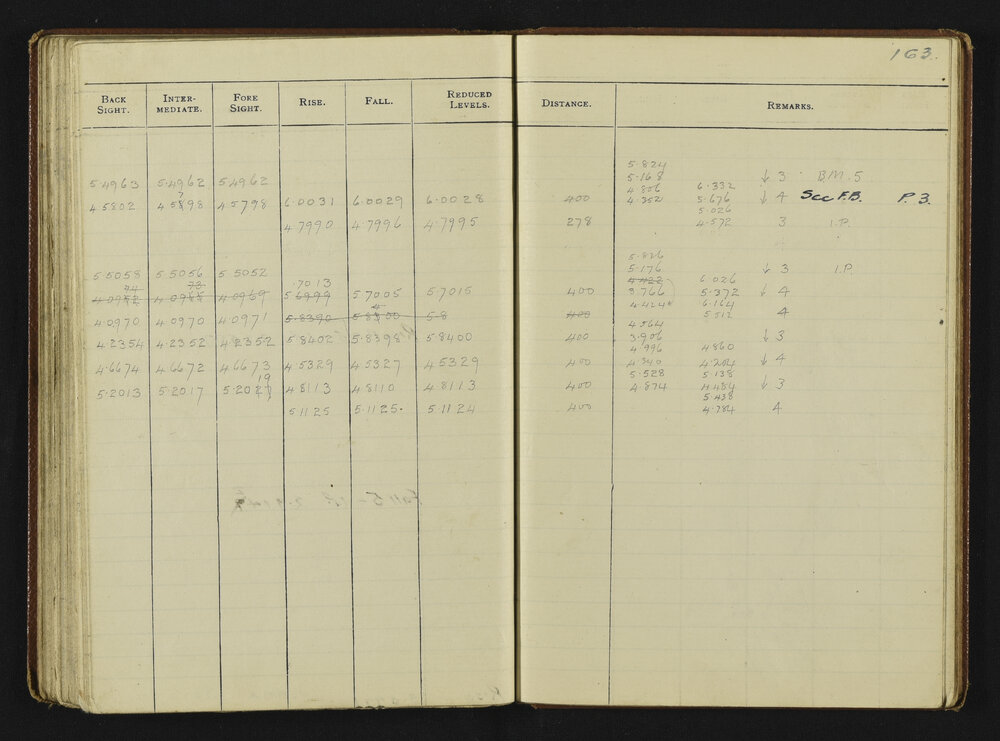 163.
BACK SIGHT. INTER- MEDIATE. FORE SIGHT. RISE. FALL. REDUCED LEVELS. DISTANCE. REMARKS.
5.824
5.4963 5.4962 5.4962 5.168 ↓ 3 B.M. 5
4.806 6.332
4.5802 4.5798 4.5798 6.0031 6.0029 6.0028 400 4.352 5.676 ↓ 4 See F.B. P. 3.
5.026
4.7990 4.7996 4.7995 278 4.572 3 I.P.
5.826
5.5058 5.5056 5.5052 5.176 ↓ 3 I.P.
74 73 .7013 4.422 6.026
4.0969 5.6999 5.7005 5.7015 400 3.766 5.372 ↓ 4
4.424 6.164
4.0970 4.0970 4.0971 5.8390 5.8 400 5.512 4
4.564
4.2354 4.2352 4.2352 5.8402 5.8398 5.8400 400 3.906 ↓ 3
4.996 4.860
4.6674 4.6672 4.6673 4.5329 4.5327 4.5329 400 4.340 4.204 ↓ 4
19 5.528 5.138
5.2013 5.2017 5.202 4.8113 4.8110 4.8113 400 4.874 4.484 ↓ 3
5.438
5.1125 5.1125. 5.1124 400 4.784 4